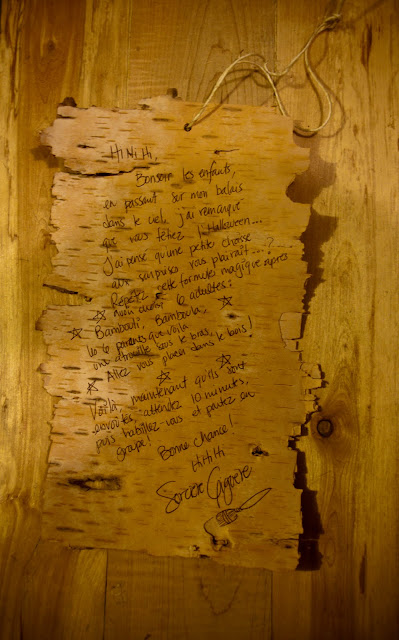 Hi Hi Hi,
Bonsoir les enfants,
en passant sur mon balais
dans le ciel, j'ai remarqué
que vous fêtiez l'Halloween...
J'ai pensé qu'une petite chasse
aux surprises vous plairait...?
Répétez cette formule magique après
avoir les 6 adultes:
Bambouli, Bamboula,
les 6 parents que voilà
une citrouille sous le bras,
Allez vous plusieurs dans le bois!
Voilà, maintenant qu'ils sont
envoûtés, attendez 10 minutes,
puis habillez-vous et partez en
groupe!
Bonne chance!
Hi Hi Hi
Sorcière